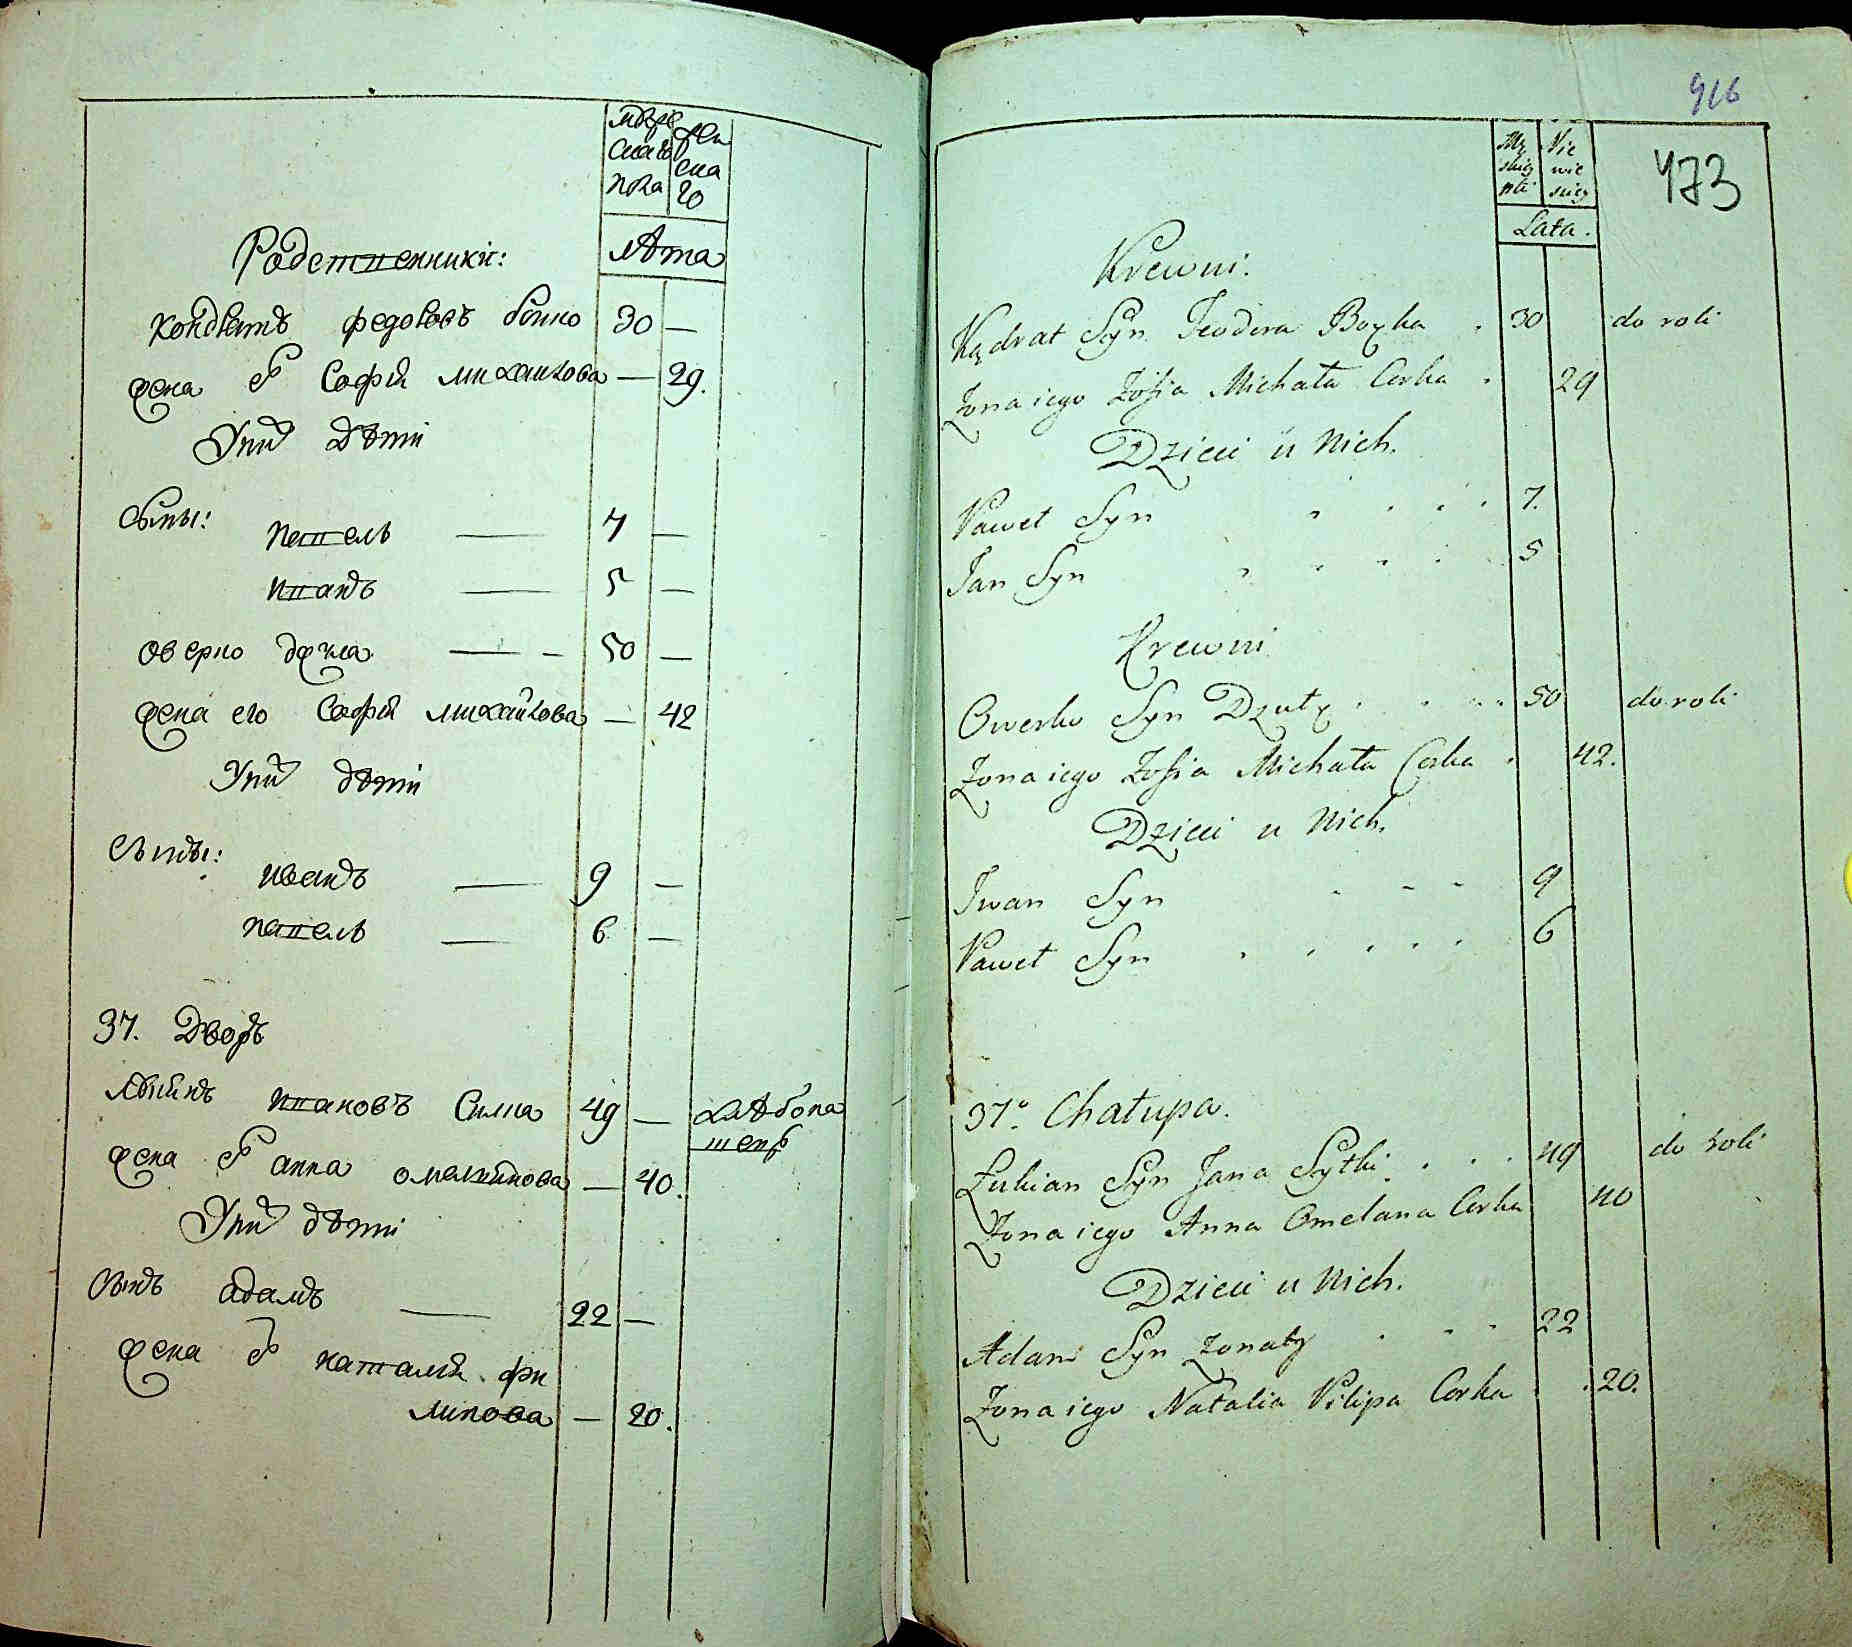 Родственники:
Лѣта
Кондратъ Федоровъ 30 —
жена его Софія Михайлова — 29.
У них дѣти
Сыны:
Павелъ — 7 —
Иванъ — 5 —
Оверко — 50 —
жена его Софія Михайлова — 42
У них дѣти
Сыны:
Иванъ — 9 —
Павелъ — 6 —
37. Дворъ
Ивановъ 49 — хлѣбопа
шецъ
жена его Анна — 40.
У них дѣти
Сынъ Адамъ — 22 —
жена его Наталія Фи
липова — 20.
916
473
Lata.
Krewni.
Kądrat Syn Teodora 30 do roli
Zona iego Zofia Michała Corka 29
Dzieci u Nich.
Paweł Syn 7.
Jan Syn 5
Krewni
Owerko Syn 50 do roli
Zona iego Zofia Michała Corka 42.
Dzieci u Nich.
Iwan Syn 9
Paweł Syn 6
37o. Chałupa.
Łukian Syn Jana Sytki 49 do Roli
Zona iego Anna Omelana Corka 40
Dzieci u Nich.
Adam Syn żonaty 22
Zona iego Natalia Filipa Corka 20.